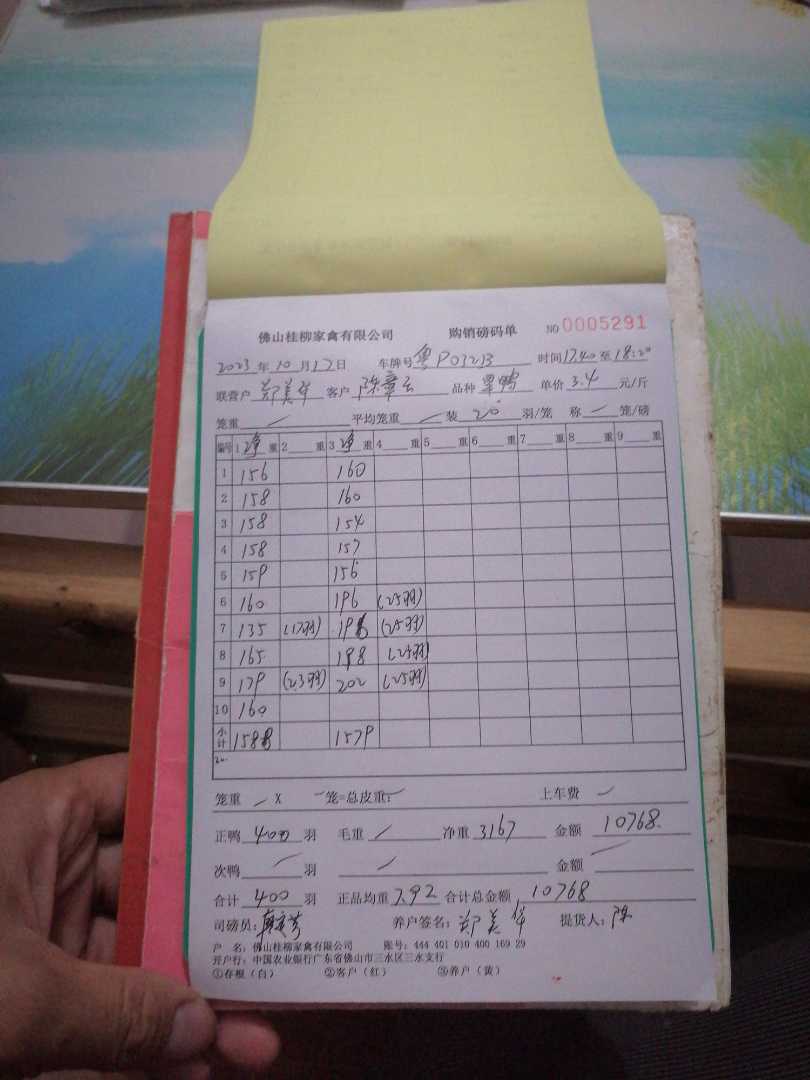 佛山桂柳家禽有限公司 购销磅码单 NO 0005291
2023 年 10 月 17 日 车牌号 粤P03213 时间 17.40 至 18:20
联营户 郑美华 客户 陈章云 品种 单价 3.4 元/斤
笼重 / 平均笼重 / 装 20 羽/笼 称 — 笼/磅
编号 1 净 重 2 重 3 净 重 4 重 5 重 6 重 7 重 8 重 9 重
1 156 160
2 158 160
3 158 154
4 158 157
5 159 156
6 160 196 (25羽)
7 135 (17羽) 196 (25羽)
8 165 198 (25羽)
9 179 (23羽) 202 (25羽)
10 160
小计 1588 1579
笼重 / X — 笼=总皮重: 上车费 —
正鸭 400 羽 毛重 / 净重 3167 金额 10768.
次鸭 / 羽 / 金额 /
合计 400 羽 正品均重 7.92 合计总金额 10768
司磅员: 养户签名: 郑美华 提货人: 陈
户 名: 佛山桂柳家禽有限公司 账号: 444 401 010 400 169 29
开户行: 中国农业银行广东省佛山市三水区三水支行
①存根(白) ②客户(红) ③养户(黄)